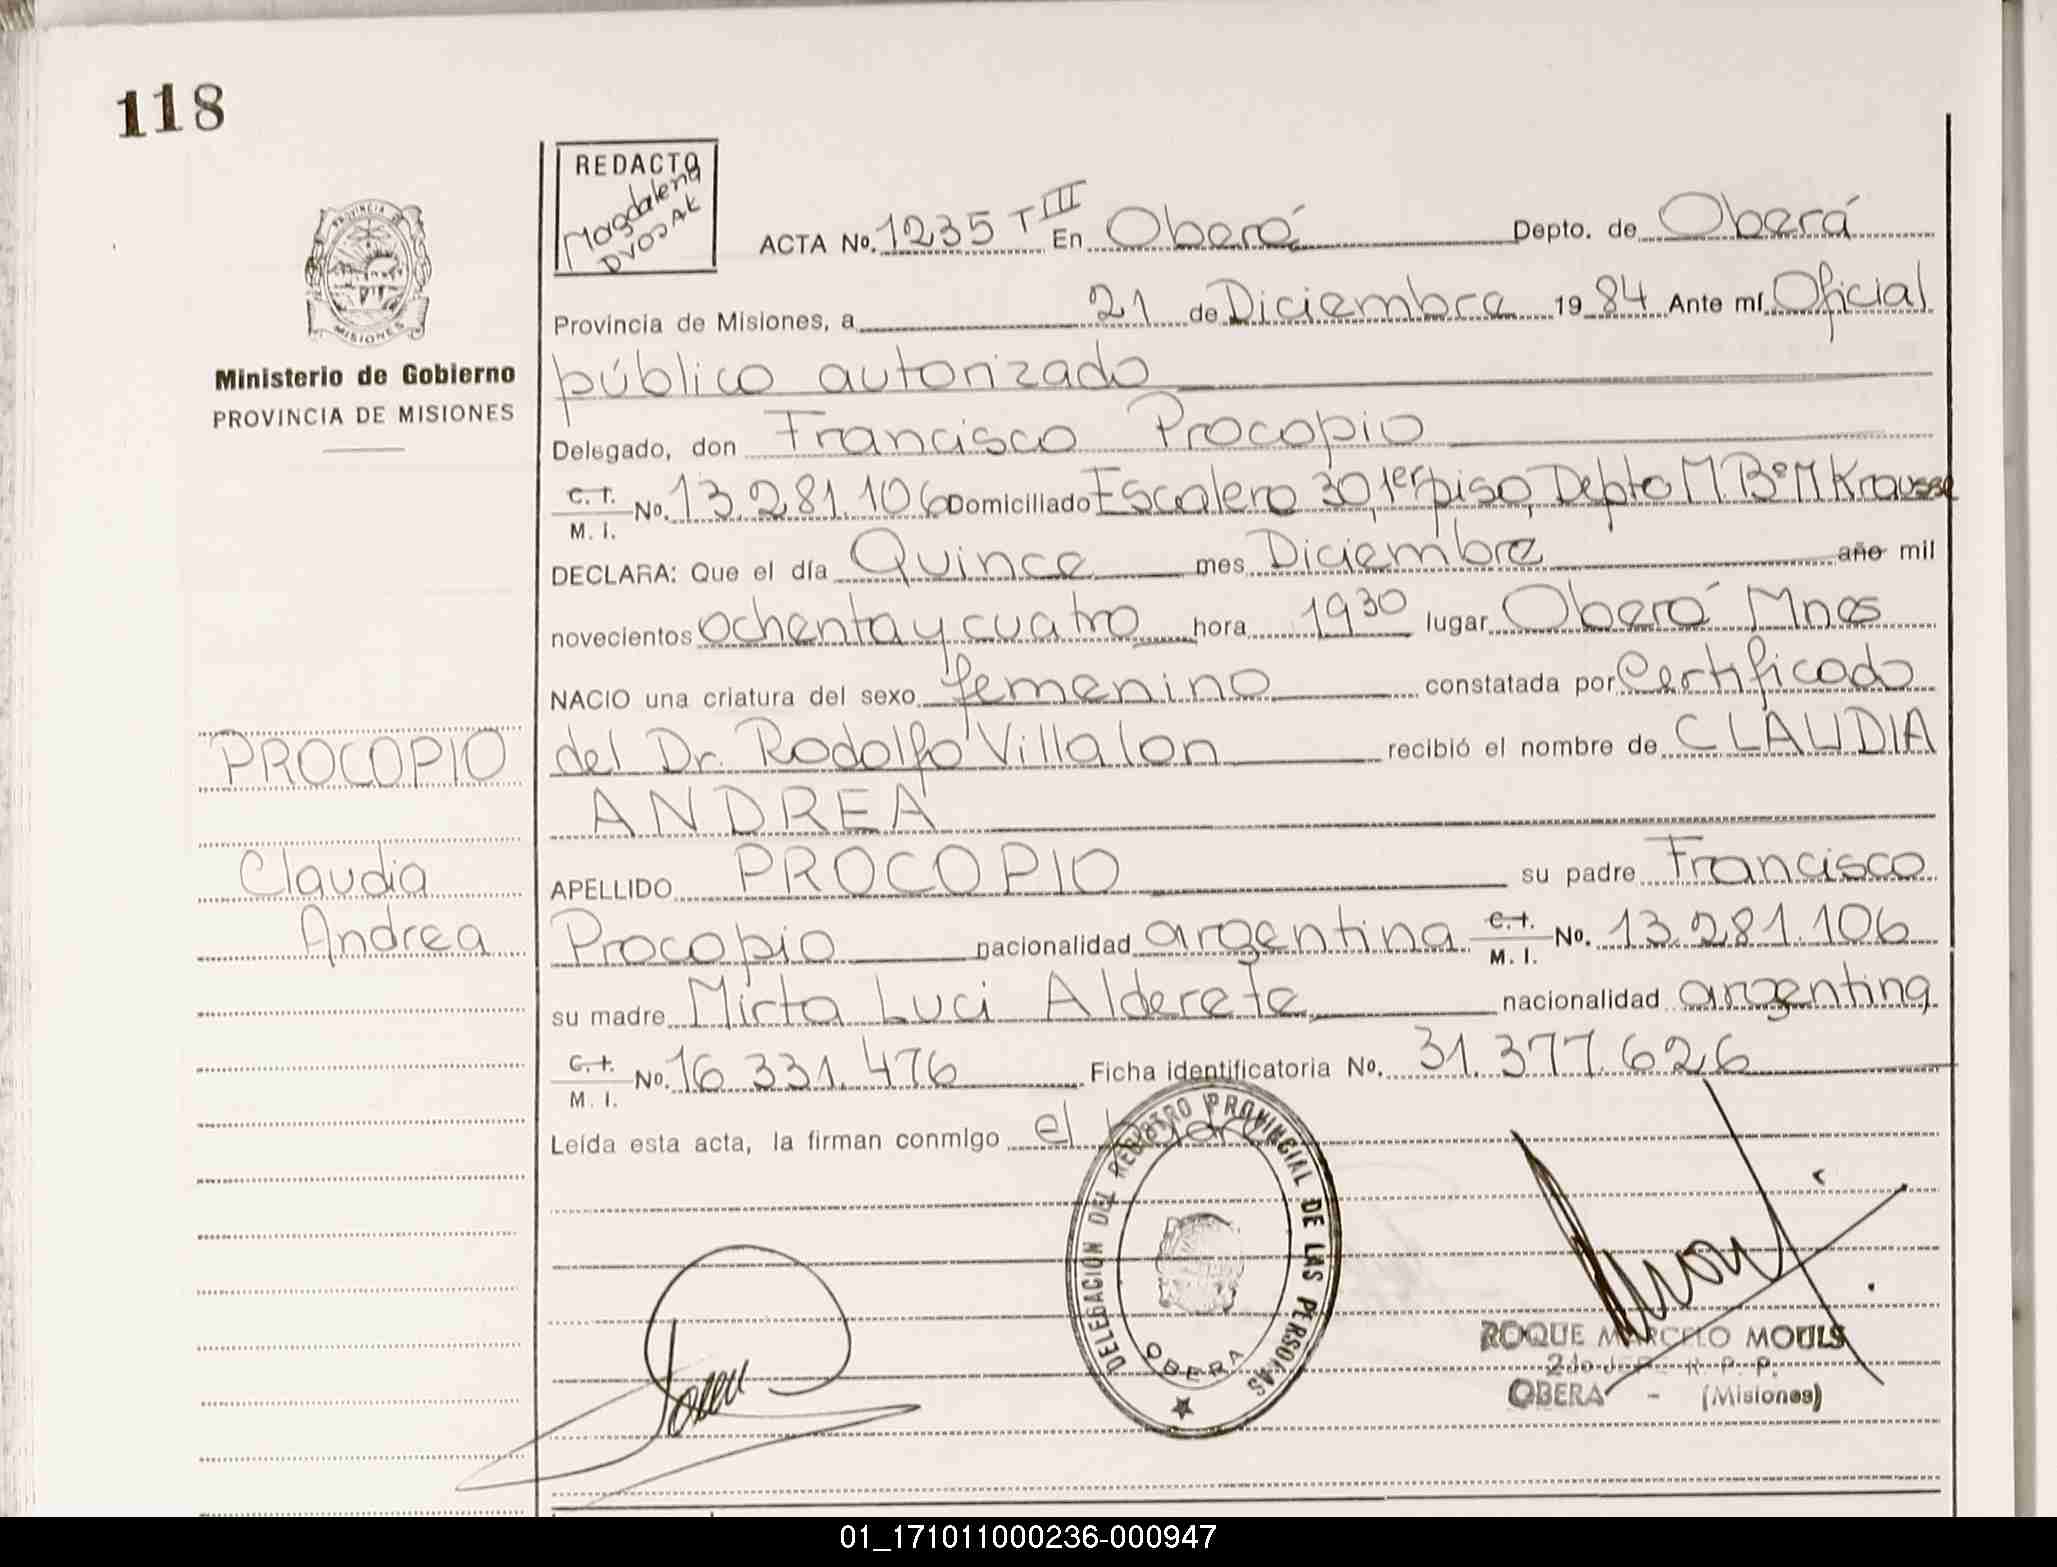 118
REDACTO
Magdalena
DVOJAK
PROVINCIA DE
MISIONES
ACTA No. 1235 T III En Oberá Depto. de Oberá
Provincia de Misiones, a 21 de Diciembre 19 84 Ante mí Oficial
Ministerio de Gobierno
PROVINCIA DE MISIONES
público autorizado
Delegado, don Francisco Procopio
C. I. M. I. No. 13.281.106 Domiciliado Escalero 30, 1er piso, Depto M. Bº M Krausse
DECLARA: Que el día Quince mes Diciembre año mil
novecientos ochenta y cuatro hora 19 30 lugar Oberá Mnes
NACIO una criatura del sexo femenino constatada por Certificado
PROCOPIO
del Dr. Rodolfo Villalon recibió el nombre de CLAUDIA
ANDREA
Claudia
Andrea
APELLIDO PROCOPIO su padre Francisco
Procopio nacionalidad argentina C. I. M. I. No. 13.281.106
su madre Mirta Luci Alderete nacionalidad argentina
C. I. M. I. No. 16.331.476 Ficha identificatoria No. 31.377.626
Leída esta acta, la firman conmigo el padre
DELEGACION DEL REGISTRO PROVINCIAL DE LAS PERSONAS
OBERA
ROQUE MARCELO MOULS
2do JEFE R. P. P.
OBERA - (Misiones)
01_171011000236-000947